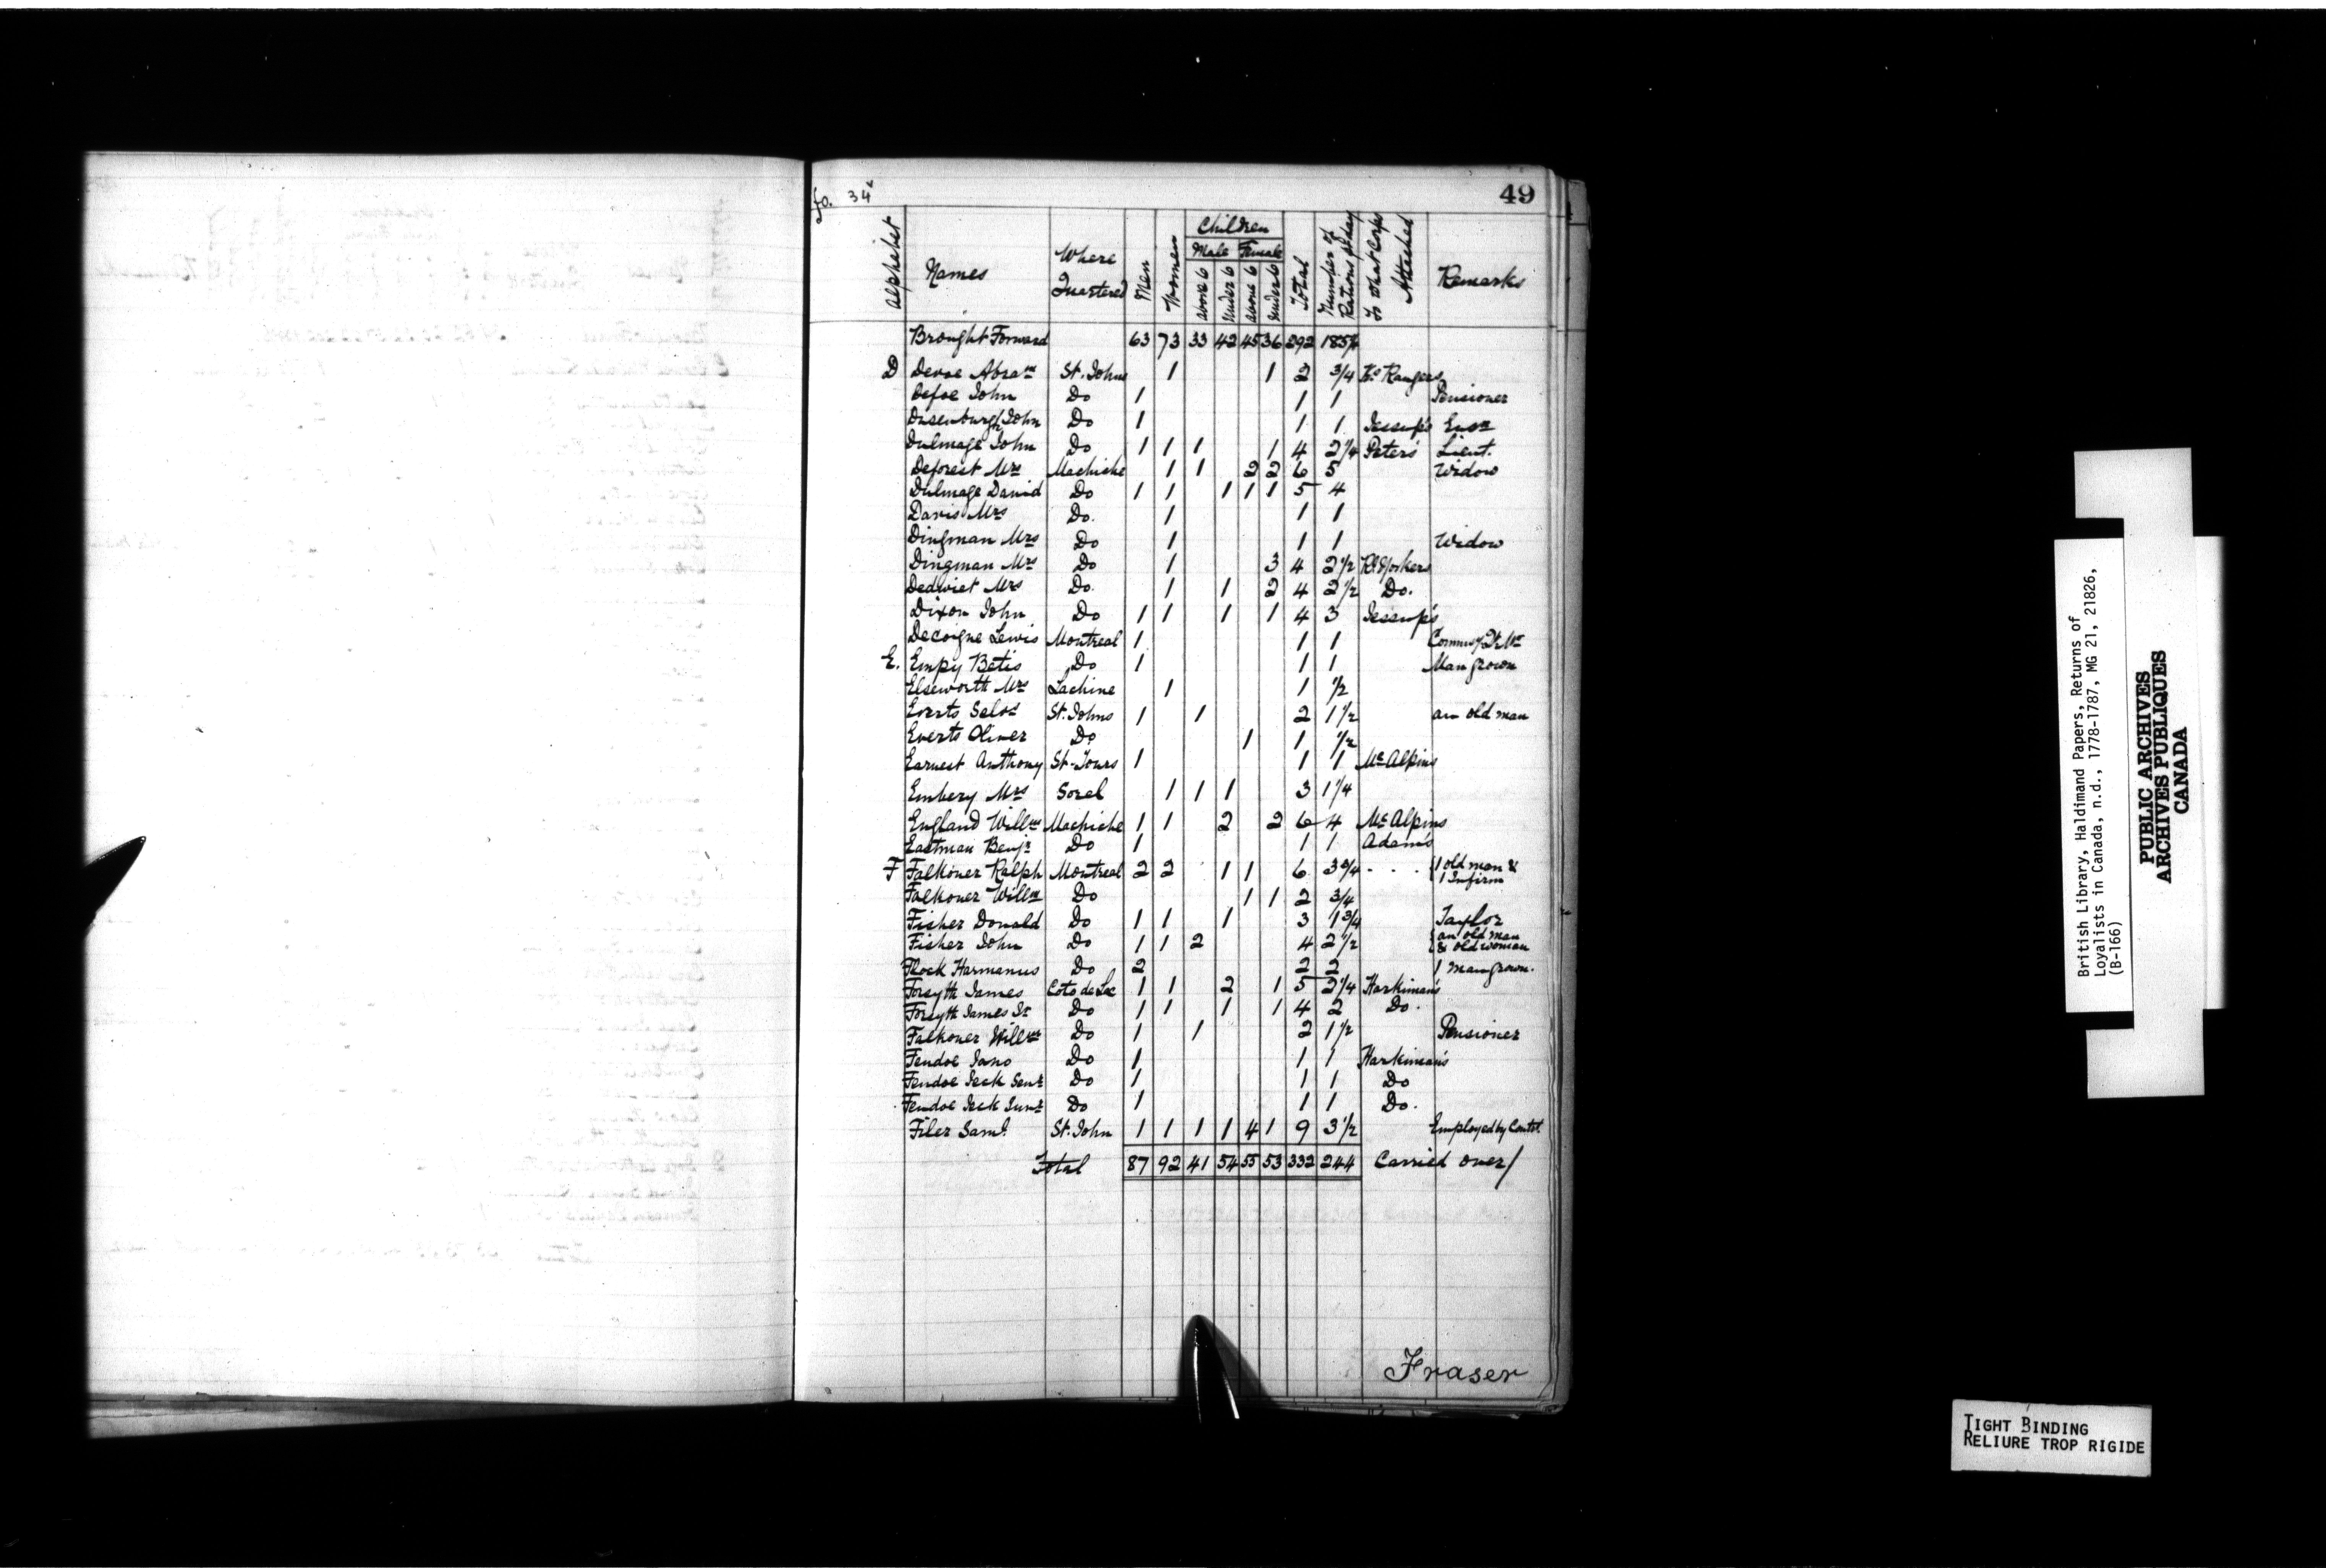 fo. 34
49
alphabet Names Where Quartered Men Women Children Male Female above 6 under 6 above 6 under 6 Total Number of Rations pr day To what Corps Attached Remarks
Brought Forward 63 73 33 42 45 36 292
D Devoe Abram St. Johns 1 1 2 3/4 Ks Rangers
Defoe John Do 1 1 1 Pensioner
Dusenburgh John Do 1 1 1 Jessup's Ensn
Dulmage John Do 1 1 1 1 4 2 1/4 Peters Lieut.
Deforest Mrs Machiche 1 1 2 2 6 5 Widow
Dulmage David Do 1 1 1 1 1 5 4
Davis Mrs Do. 1 1 1
Dingman Mrs Do 1 1 1 Widow
Dingman Mrs Do 1 3 4 2 1/2 Rl Yorkers
Dedwiet Mrs Do. 1 1 2 4 2 1/2 Do.
Dixon John Do 1 1 1 1 4 3 Jessup's
Decoigne Lewis Montreal 1 1 1
E. Empy Betis Do 1 1 1 Man grown
Elseworth Mrs Lachine 1 1 1/2
Everts Selos St. Johns 1 1 2 1 1/2 an old man
Everts Oliver Do 1 1 1/2
Earnest Anthony St-Tours 1 1 1 McAlpins
Embery Mrs Sorel 1 1 1 3 1 1/4
England Willm Machiche 1 1 2 2 6 4 McAlpins
Eastman Benjn Do 1 1 1 Adams
F Falkoner Ralph Montreal 2 2 1 1 6 3 3/4 . . . {1 old man & 1 Infirm
Falkoner Willm Do 1 1 2 3/4
Fisher Donald Do 1 1 1 3 1 3/4 Taylor
Fisher John Do 1 1 2 4 2 1/2 {an old man & old woman
Flock Harmanus Do 2 2 2 1 man grown.
Forsyth James Coto de Lac 1 1 2 1 5 2 1/4 Harkiman's
Forsyth James Jr Do 1 1 1 1 4 2 Do.
Falkoner Willm Do 1 1 2 1 1/2 Pensioner
Fendoe Jano Do 1 1 1 Harkiman's
Fendoe Jeck Senr Do 1 1 1 Do
Fendoe Jeck Junr Do 1 1 1 Do.
Filer Saml. St. John 1 1 1 1 4 1 9 3 1/2 Employed by Contrt.
Total 87 92 41 54 55 53 332 244 Carried over/
Fraser
British Library, Haldimand Papers, Returns of
Loyalists in Canada, n.d., 1778-1787, MG 21, 21826,
(B-166)
PUBLIC ARCHIVES
ARCHIVES PUBLIQUES
CANADA
TIGHT BINDING
RELIURE TROP RIGIDE